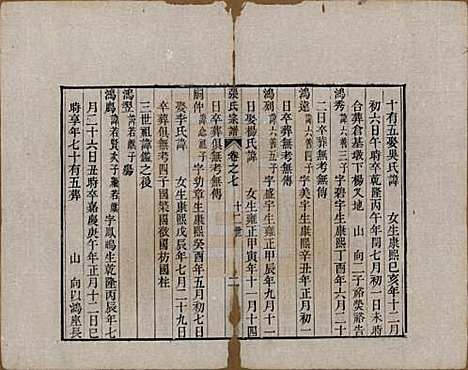 十有五娶吳氏諱　女生康熙己亥年十二月
初六日午時卒乾隆丙午年閏七月初一日未時
合葬倉基墩下楊义地　山　向二子裕英裕告
鴻秀諱六善三子字碧宇生康熙丁酉年六月二十
二日卒葬俱無考無傳
鴻遠諱六善四子字美宇生康熙辛丑年正月初一
日卒葬俱無考無傳
鴻列諱六善五子字　宇生雍正甲辰年九月十一
日娶楊氏諱　女生雍正甲寅年十一月十四
日卒葬俱無考無傳
張氏宗譜　卷之七　十二世　二
嗣仲諱　子字功章生康熙癸酉年五月初七日
娶李氏諱　女生康熙戊辰年七月二十九日
卒葬無考四子國榮國徵國枋國柱
三世祖諱鑑之後
鴻翌諱若獻子　殤
鴻鶱諱若賢子蕭若獻子字鳳鳴生乾隆丙辰年七
月二十六日丑時卒嘉慶庚午年正月十二日巳
時享年七十有五葬　山　向以鴻座長